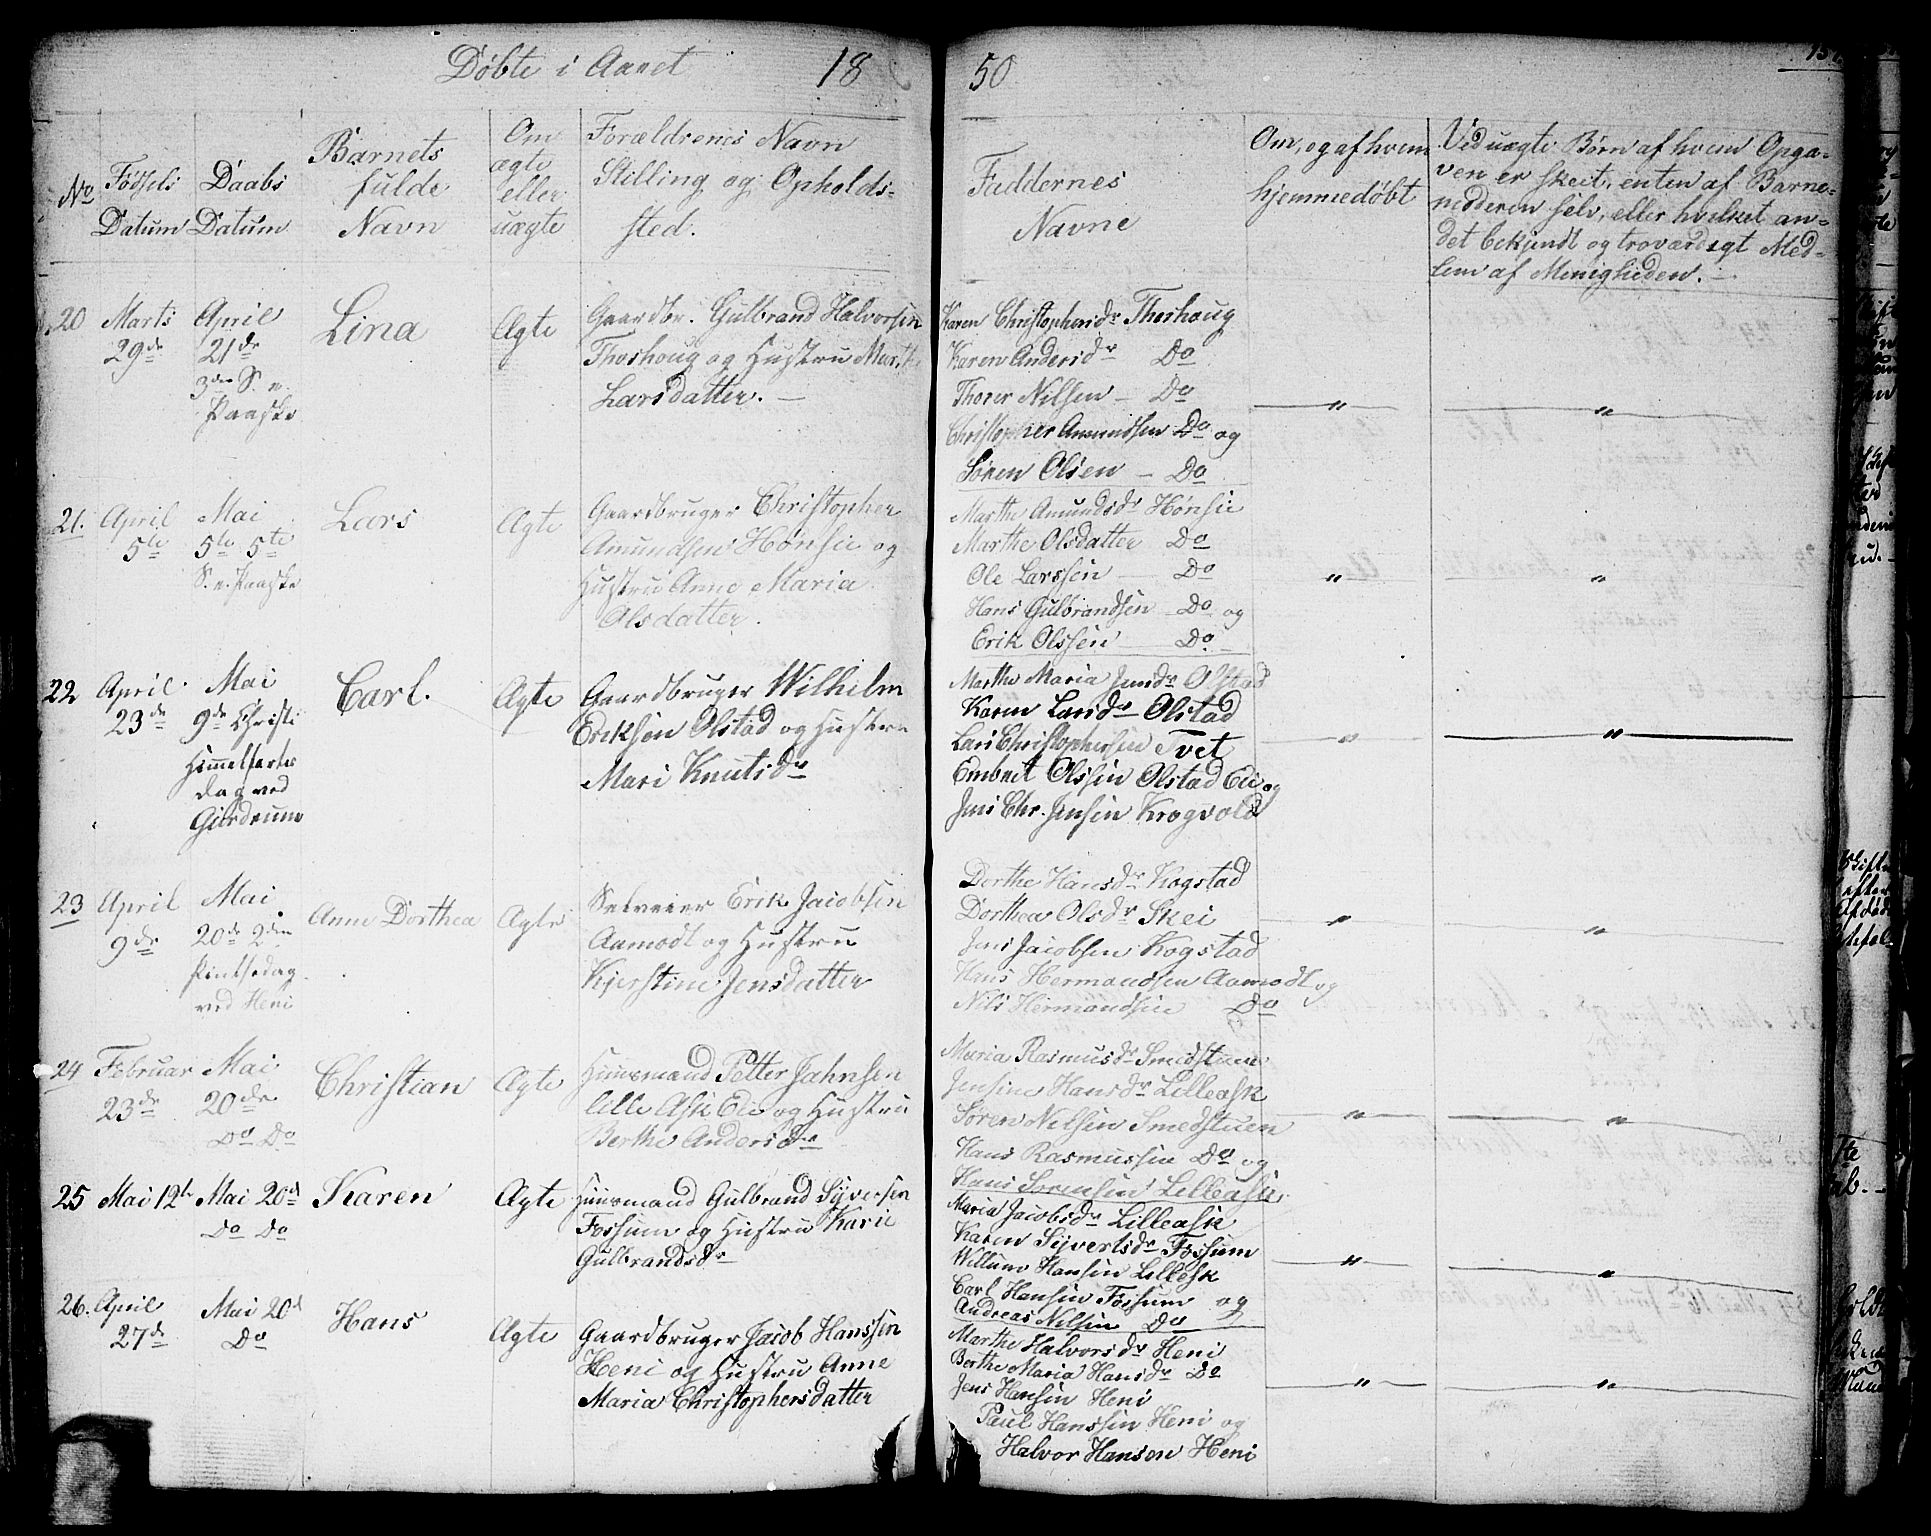 Døbte i Aaret 18
50
No
Fødsels
Datum
Daabs
Datum
Barnets
fulde
Navn
Om
ægte
eller
uægte
Forældrenes Navn
Stilling og Opholds-
sted.
Faddernes
Navne
Om, og af hvem
hjemmedøbt
Ved uægte Børn af hvem Opga-
ven er skeet, enten af Barne-
modderen selv, eller hvilket an-
det bekjendt og troværdigt Med-
lem af Menigheden.
20
Marts
29de
April
21de
3die S. e.
Paaske
Lina
Ægte
Gaardbr. Gulbrand Halvorsen
Thorhoug og Hustru Marthe
Larsdatter.
Karen Christophersdr Thorhoug
Karen Andersdr Do
Thorer Nilsen Do
Christopher Amundsen Do og
Søren Olsen Do
21.
April
5te
Mai
5te 5te
S. e. Paaske
Lars
Ægte
Gaardbruger Christopher
Amundsen Hønsie og
Hustru Anne Maria
Olsdatter.
Marthe Amundsdr Hønsie
Marthe Olsdatter Do
Ole Larssen Do
Hans Gulbrandsen Do og
Erik Olssen Do
22
April
23de
Mai
9de Christi
Himmelfarts
dag ved
Gjerdrum
Carl.
Ægte
Gaardbruger Wilhelm
Eriksen Olstad og Hustru
Mari Knutsdr
Marthe Maria Jensdr Olstad
Karen Larsdr Olstad
Lars Christophersen Tvet
Embret Olssen Olstad Eie og
Jens Chr. Jensen Krogvold
23
April
9de
Mai
20de 2den
Pintsedag
ved Heni
Anne Dorthea
Ægte
Selveier Erik Jacobsen
Aamodt og Hustru
Kjerstine Jensdatter
Dorthe Hansdr Kogstad
Dorthea Olsdr Skei
Jens Jacobsen Kogstad
Hans Hermandsen Aamodt og
Nils Hermandsen Do
24
Februar
23de
Mai
20de
Do Do
Christian
Ægte
Huusmand Petter Jahnsen
lille Ask Eie og Hustru
Berthe Andersdr
Maria Rasmusdr Smedstuen
Jensine Hansdr Lilleask
Søren Nilsen Smedstuen
Hans Rasmussen Do og
Hans Sørensen Lilleask
25
Mai 12te
Mai 20de
Do Do
Karen
Ægte
Huusmand Gulbrand Syversen
Fossum og Hustru Karie
Gulbrandsdr
Maria Jacobsdr Lilleask
Karen Syvertsdr Fossum
Willum Hansen Lilleask
Carl Hansen Fossum og
Andreas Nilsen Do
26.
April
27de
Mai 20de
Do
Hans
Ægte
Gaardbruger Jacob Hanssen
Heni og Hustru Anne
Maria Christophersdatter
Marthe Halvorsdr Heni
Berthe Maria Hansdr Do
Jens Hansen Heni
Paul Hanssen Heni og
Halvor Hansen Heni